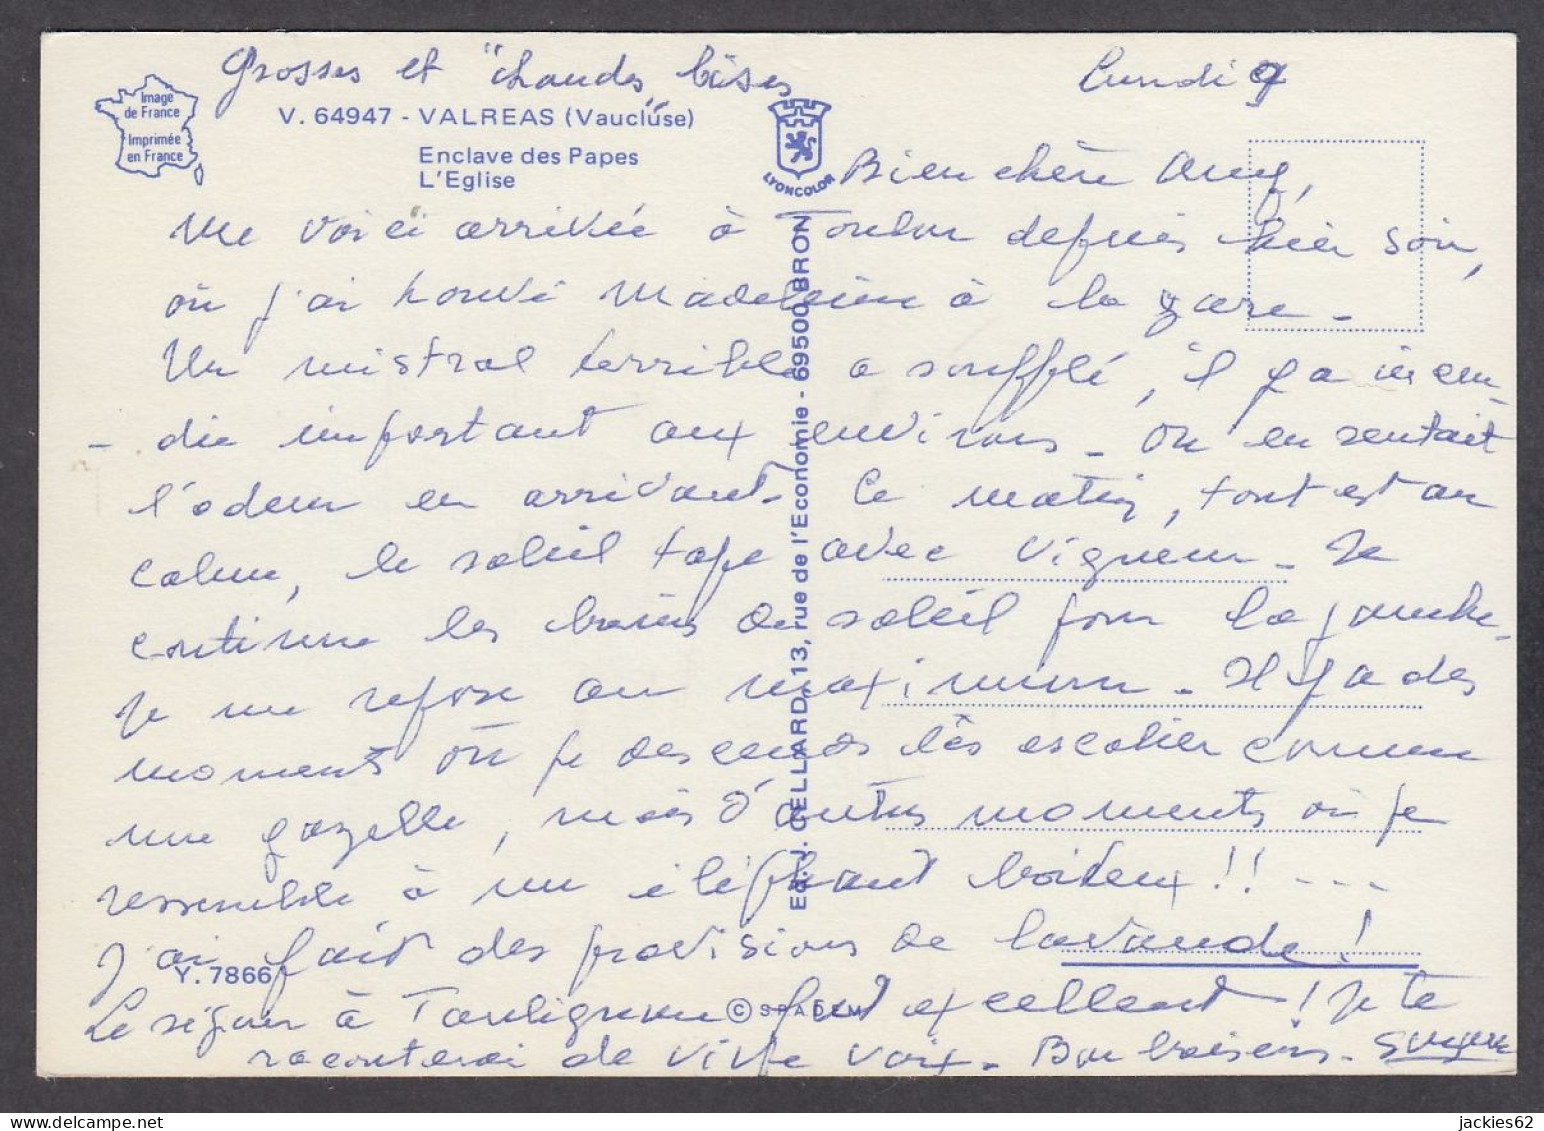 Grosses et "chaudes" bises
Lundi 9
Image
de France
Imprimée
en France
V. 64947 - VALREAS (Vaucluse)
Enclave des Papes
L'Eglise
LYONCOLOR
Bien chère Amy,
Me voici arrivée à Toulon depuis hier soir,
où j'ai trouvé Madeleine à la gare.
Un mistral terrible a soufflé, il y a incen-
- die important aux environs - On en sentait
l'odeur en arrivant. Ce matin, tout est au
calme, le soleil tape avec vigueur - Je
continue les bains de soleil pour la jambe.
Je me repose au maximum - Il y a des
moments où je descends les escalier comme
une gazelle, mais d'autres moments où je
ressemble à un éléphant boiteux !! ---
J'ai fait des provisions de lavande !
Le séjour à Taulignan fut excellent ! Je te
raconterai de vive voix - Bons baisers -
Ed. J. CELLARD, 13, rue de l'Economie - 69500 BRON
Y. 7866
© SPADEM
jackies62